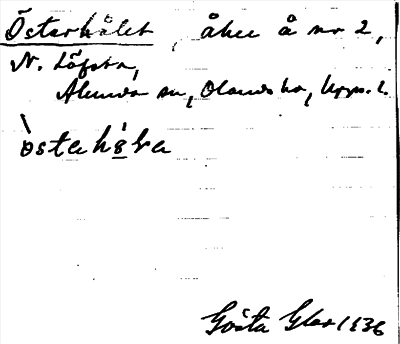 Österhålet, åker å nr 2,
N. Löfsta,
Alunda sn, Olands hd, Upps. l.
östahòḷa
Gösta Glas 1936